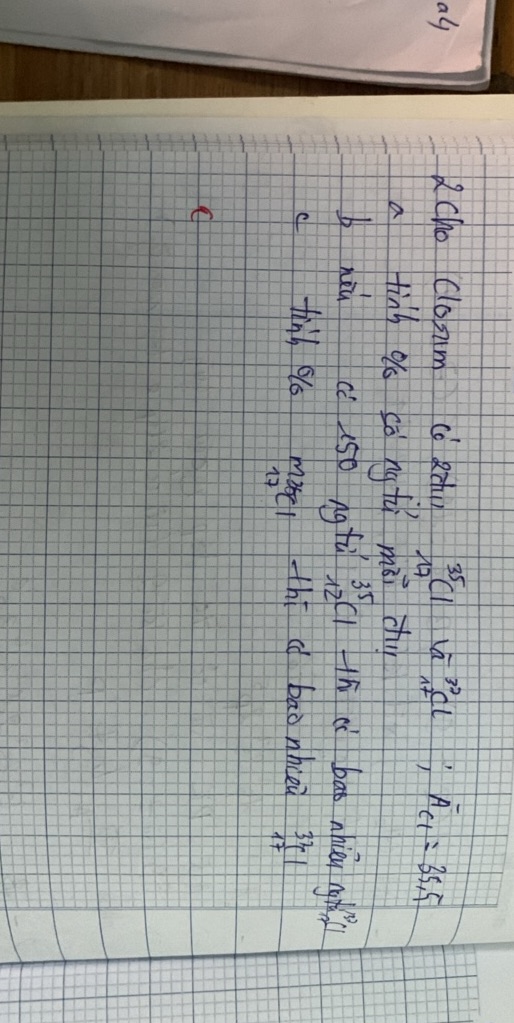 a4
2 Cho Closum có 2đv ³⁵₁₇Cl và ³⁷₁₇Cl ; Ā Cl = 35,5
a tính % số ngtử mỗi đv
b nếu có 150 ngtử ³⁵₁₂Cl thì có bao nhiêu ngtử ³⁷₁₇Cl
c tính % m ₁₇Cl thì có bao nhiêu ³⁷₁₇Cl
C